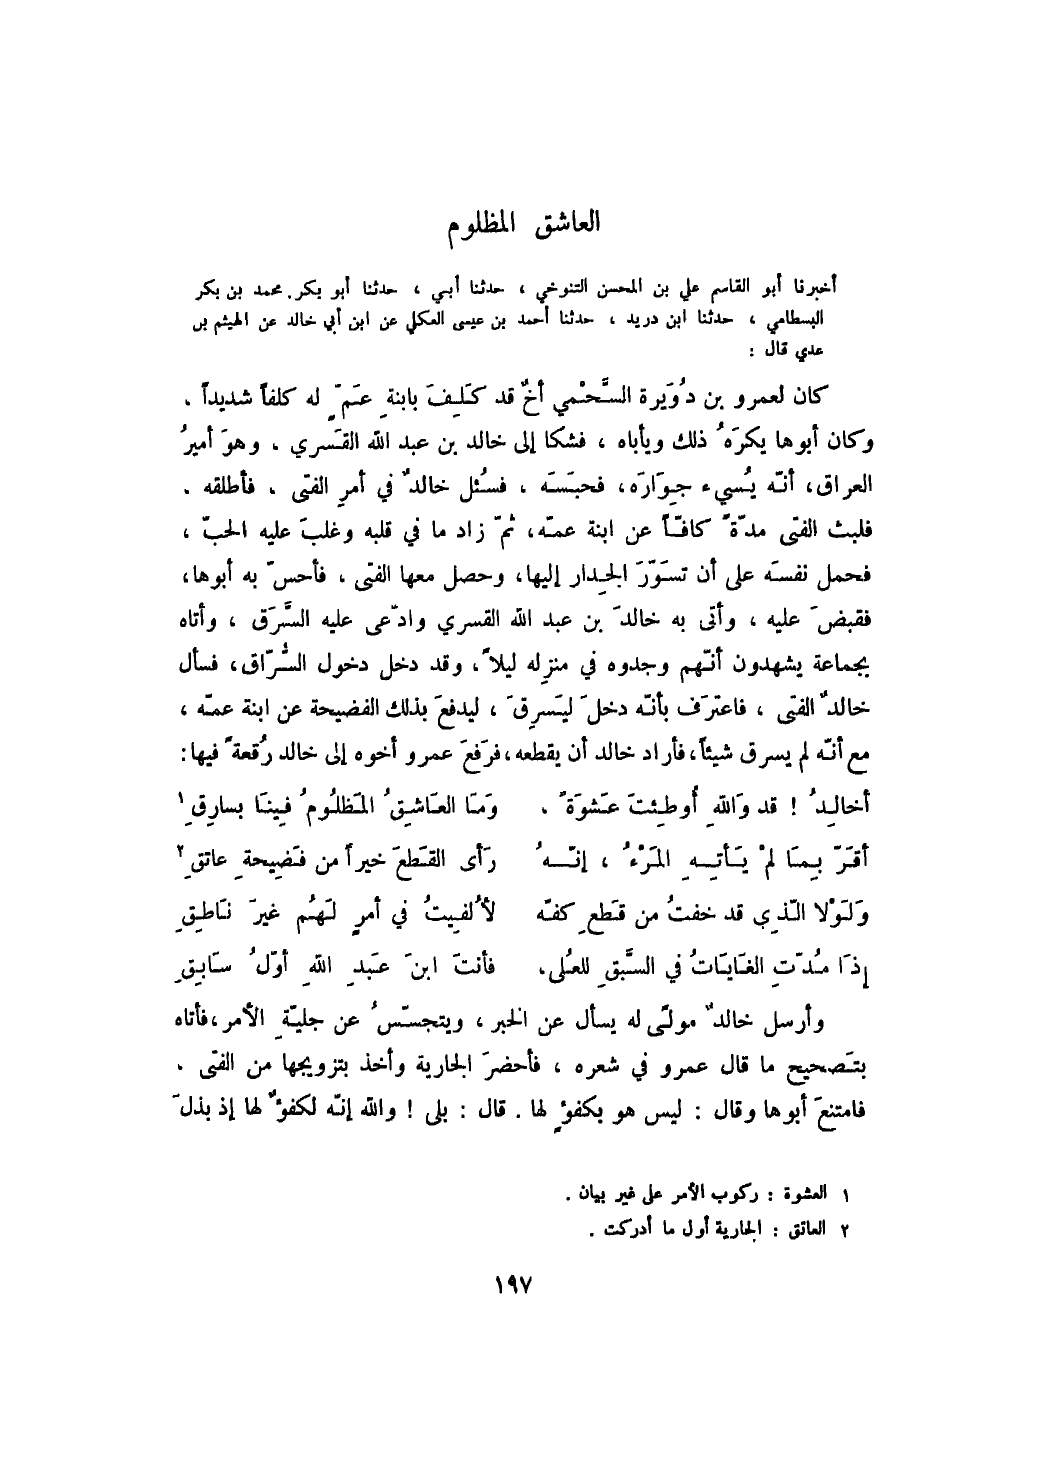 العاشق المظلوم
أخبرنا أبو القاسم علي بن المحسن التنوخي ، حدثنا أبي ، حدثنا أبو بكر. محمد بن بكر
البسطامي ، حدثنا ابن دريد ، حدثنا أحمد بن عيسى العكلي عن ابن أبي خالد عن الهيثم بن
عدي قال :
كان لعمرو بن دُوَيرة السَّحْمي أخٌ قد كَلِفَ بابنةِ عَمٍّ له كلفاً شديداً .
وكان أبوها يكرَهُ ذلك ويأباه ، فشكا إلى خالد بن عبد الله القَسري . وهوَ أميرُ
العراق، أنّه يُسيء جِوَارَه، فحبَسَه ، فسُئل خالدٌ في أمرِ الفتى . فأطلقه .
فلبث الفتى مدّةً كافّاً عن ابنة عمّه، ثمّ زاد ما في قلبه وغلبَ عليه الحبّ ،
فحمل نفسَه على أن تسَوّرَ الجِدار إليها، وحصل معها الفتى . فأحسّ به أبوها،
فقبضَ عليه ، وأتى به خالدَ بن عبد الله القسري وادّعى عليه السَّرَق ، وأتاه
بجماعة يشهدون أنّهم وجدوه في منزِله ليلاً، وقد دخل دخول السُّرّاق، فسأل
خالدٌ الفتى ، فاعترَف بأنّه دخلَ ليَسرِقَ ، ليدفعَ بذلك الفضيحة عن ابنة عمّه ،
مع أنّه لم يسرق شيئاً،فأراد خالد أن يقطعه،فرَفعَ عمرو أخوه إلى خالد رُقعةً فيها:
أخالِدُ ! قد وَاللهِ أُوطِئتَ عَشوَةً . وَمَا العَاشِقُ المَظلُومُ فِينَا بسارِقِ ١
أقَرّ بِمَا لمْ يَأتِهِ المَرْءُ ، إنّهُ رَأى القَطعَ خيراً من فَضِيحةِ عاتقِ ٢
وَلَوْلا الّذِي قد خفتُ من قَطعِ كفّه لأُلفِيتُ في أمرٍ لَهُم غيرَ نَاطِقِ
إذَا مُدّتِ الغَايَاتُ في السَّبقِ للعُلى، فأنتَ ابنَ عَبدِ اللهِ أوّلُ سَابِقِ
وأرسل خالدٌ مولًى له يسأل عن الخبر ، ويتجسّسُ عن جليّةِ الأمر،فأتاه
بتَصحيح ما قال عمرو في شعره ، فأحضرَ الجارية وأخذ بتزويجها من الفتى .
فامتنعَ أبوها وقال : ليس هو بكفوٍ لها . قال : بلى ! والله إنّه لكفوٌ لها إذ بذلَ
١ العشوة : ركوب الأمر على غير بيان .
٢ العاتق : الجارية أول ما أدركت .
١٩٧